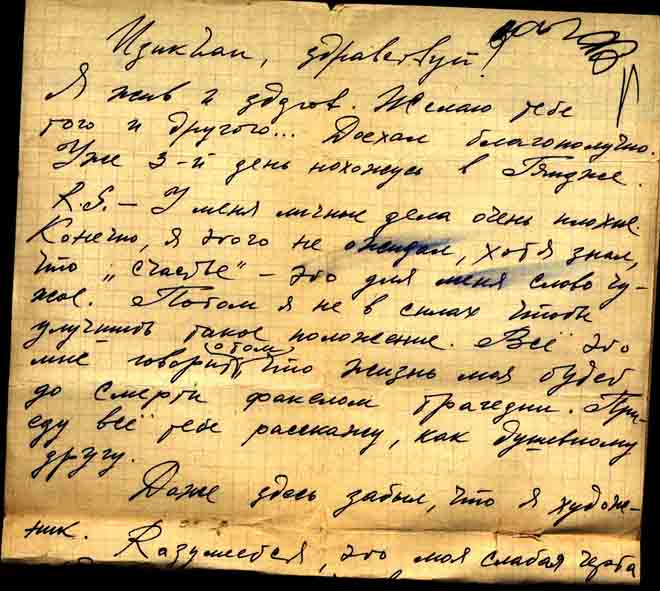 Изикчан, здравствуй!
Я жив и здоров. Желаю тебе
того и другого... Доехал благополучно.
Уже 3-й день нахожусь в Гяндже.
R.S. – У меня личные дела очень плохие.
Конечно, я этого не ожидал, хотя знал,
что „счастье" – это для меня слово чу-
жое. Потом я не в силах чтобы
улучшить такое положение. Всё это
мне говорит о том что жизнь моя будет
до смерти факелом трагедии. При-
еду всё тебе расскажу, как душевному
другу.
Даже здесь забыл, что я худож-
ник. Разумеется, это моя слабая черта